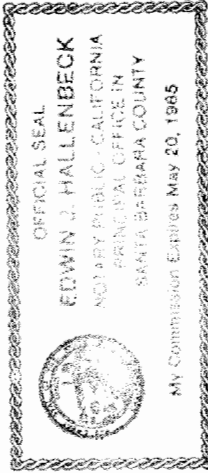 OFFICIAL SEAL
EDWIN J. HALLENBECK
NOTARY PUBLIC - CALIFORNIA
PRINCIPAL OFFICE IN
SANTA BARBARA COUNTY
My Commission Expires May 20, 1985